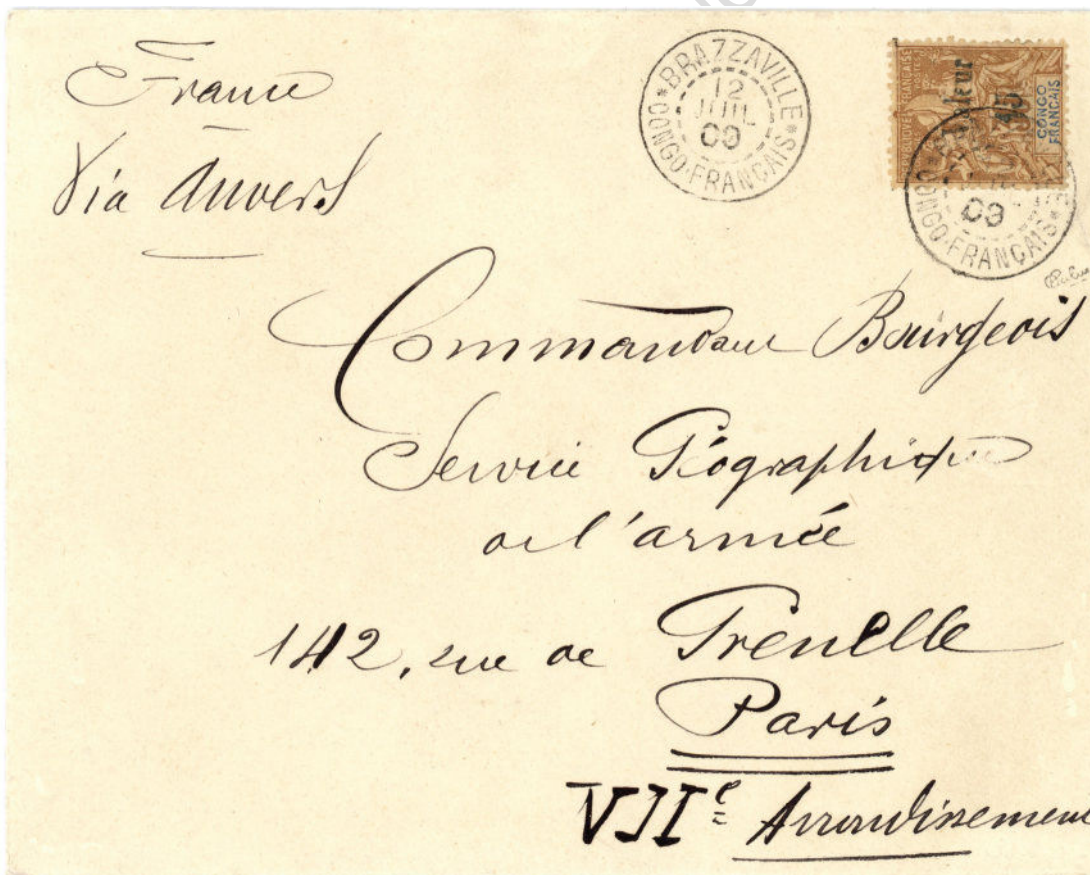 France
Via Anvers
*BRAZZAVILLE*
12
JUIL
00
CONGO-FRANÇAIS
Valeur
15
CONGO
FRANÇAIS
00
CONGO-FRANÇAIS
Commandant Bourgeois
Service Géographique
de l'armée
142, rue de Grenelle
Paris
VIIe Arrondissement